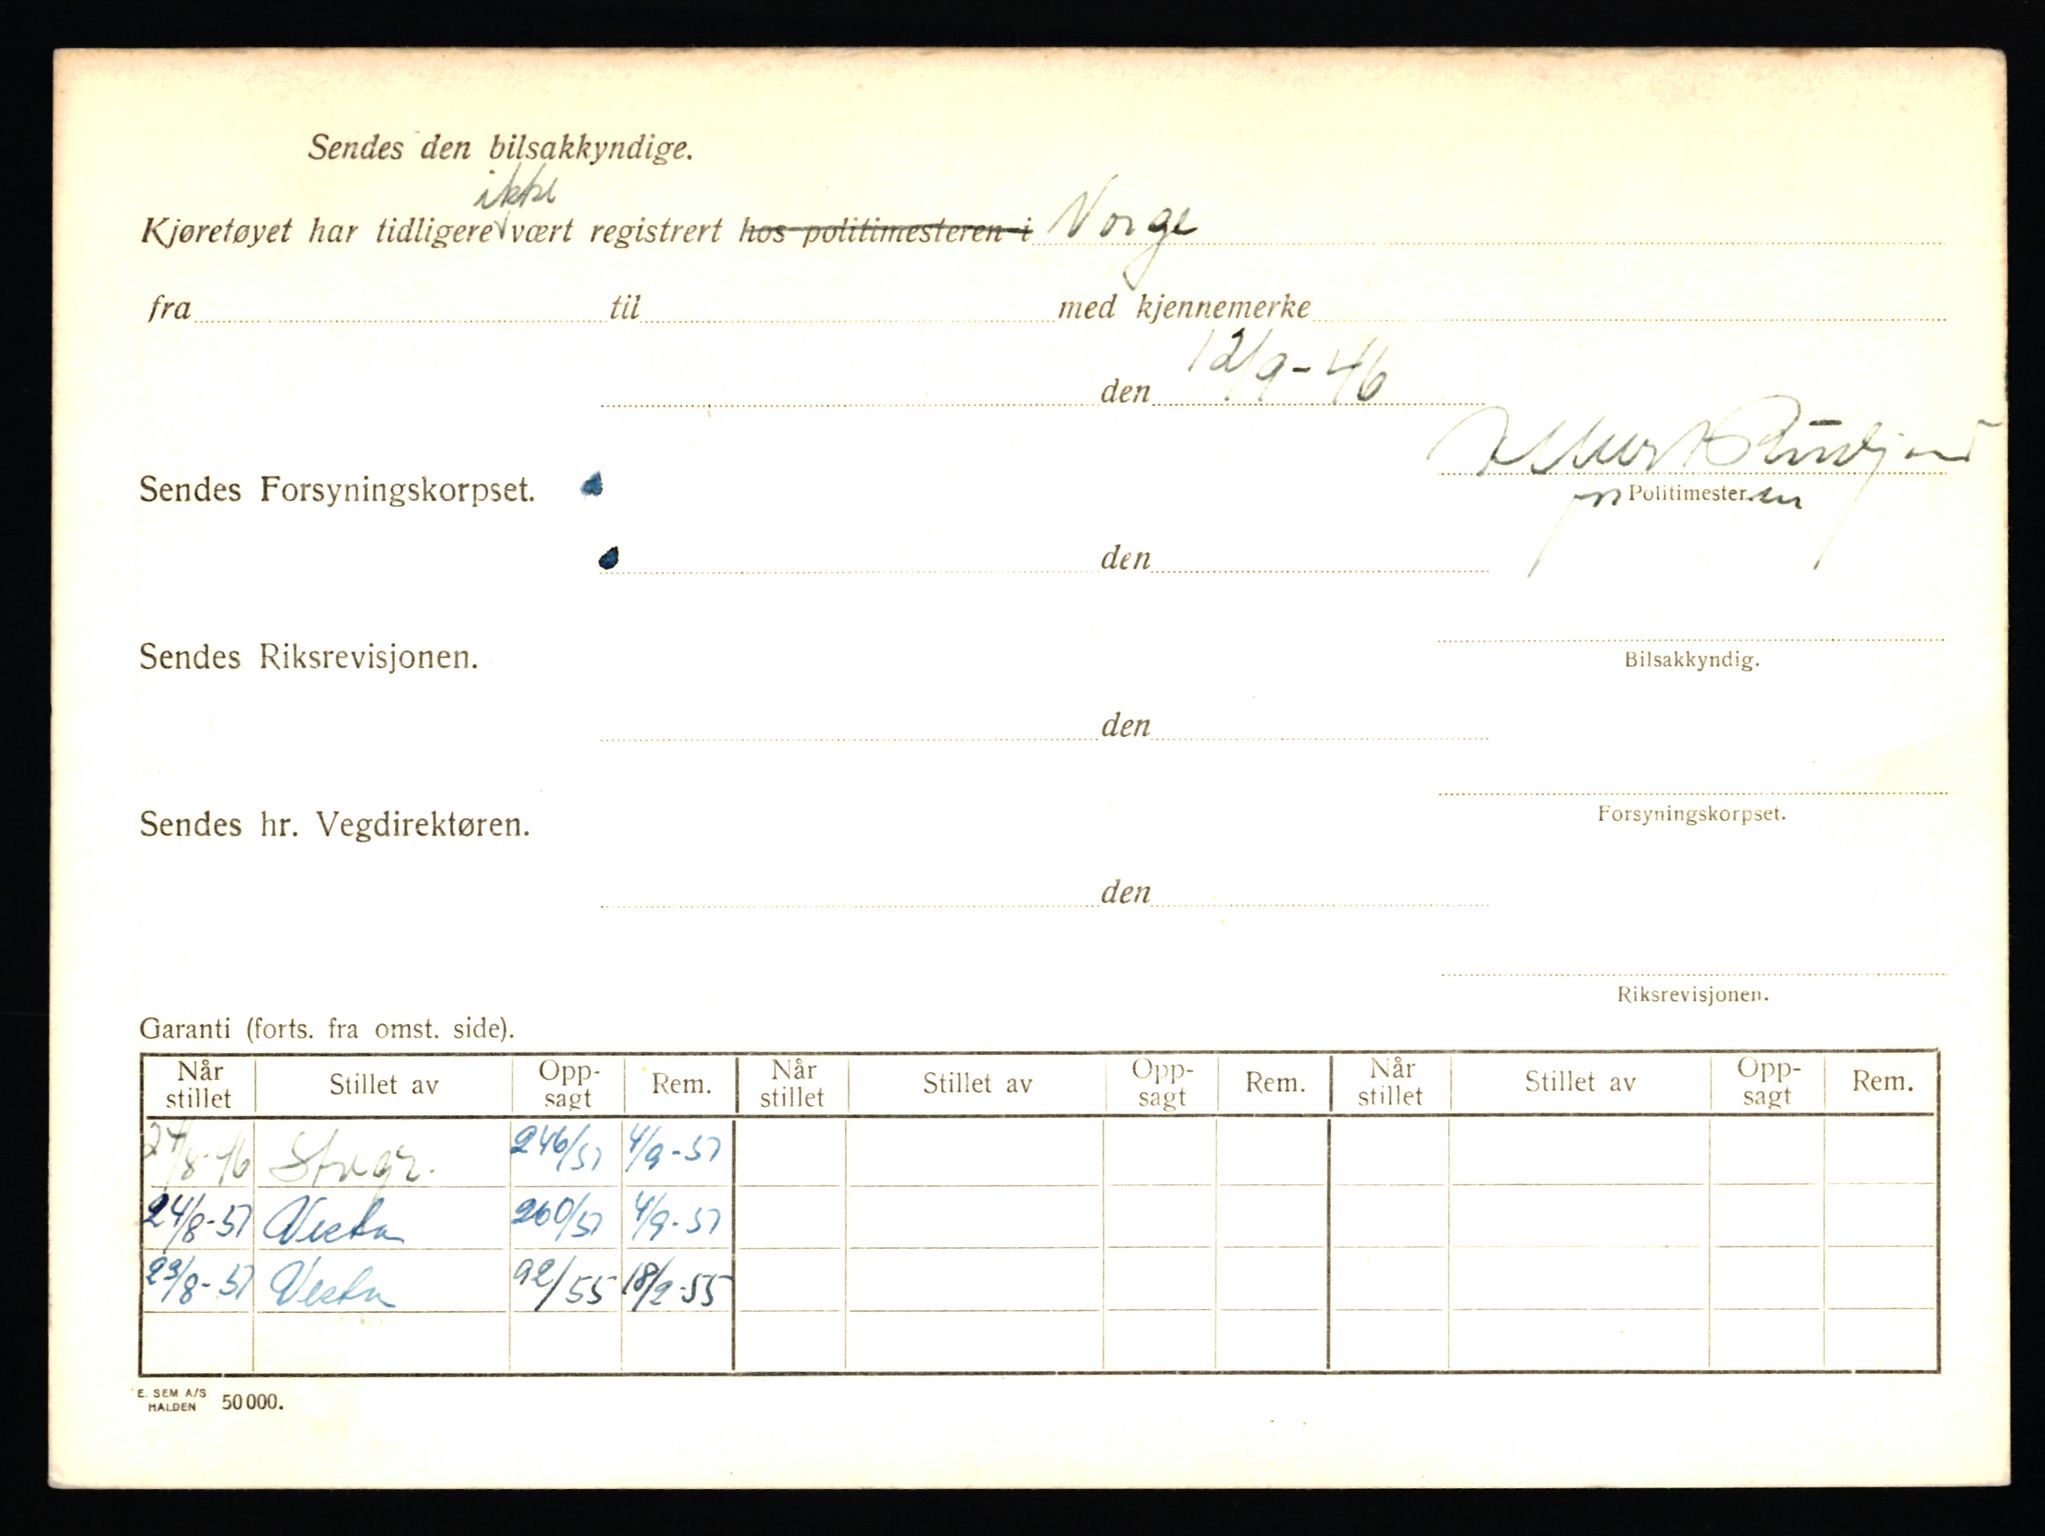 Sendes den bilsakkyndige.
ikke
Kjøretøyet har tidligere vært registrert hos politimesteren i Norge
fra til med kjennemerke
den 12/9-46
Sendes Forsyningskorpset.
Politimesteren
den
Sendes Riksrevisjonen.
Bilsakkyndig.
den
Forsyningskorpset.
Sendes hr. Vegdirektøren.
den
Riksrevisjonen.
Garanti (forts. fra omst. side).
Når stillet Stillet av Opp-sagt Rem. Når stillet Stillet av Opp-sagt Rem. Når stillet Stillet av Opp-sagt Rem.
27/8-46 246/51 4/9-51
24/8-51 Vesta 260/51 4/9-51
23/8-51 Vesta 92/55 18/2-55
E. SEM A/S
HALDEN 50000.